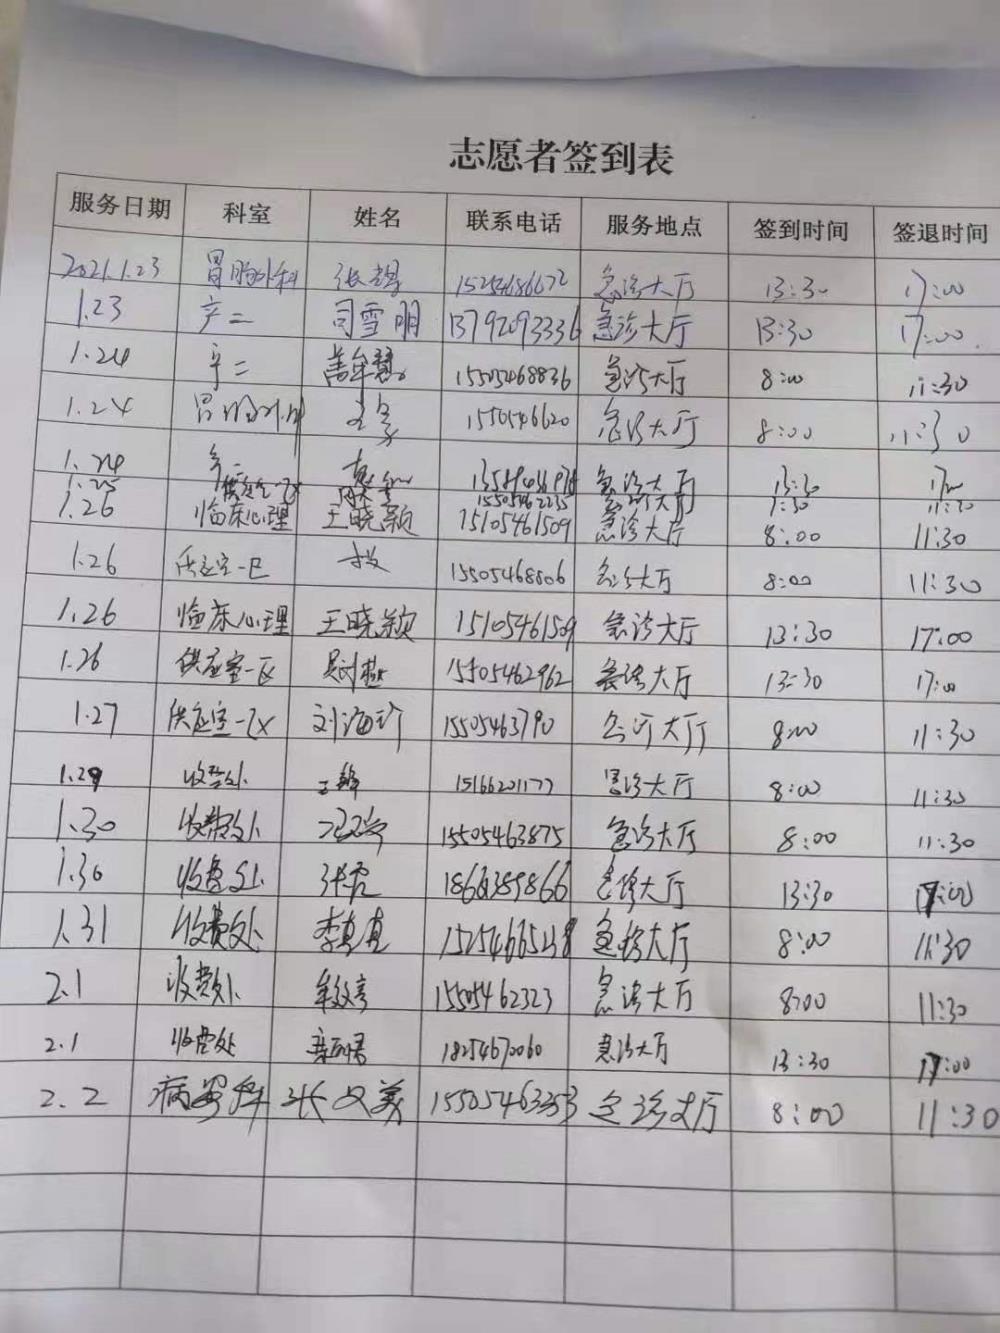 志愿者签到表
服务日期 科室 姓名 联系电话 服务地点 签到时间 签退时间
2021.1.23 胃肠外科 张 15254686672 急诊大厅 13:30 17:00
1.23 产二 司雪明 13792093336 急诊大厅 13:30 17:00
1.24 产二 盖牟慧 15505468836 急诊大厅 8:00 11:30
1.24 胃肠外科 1550546620 急诊大厅 8:00 11:30
1.24 产二 急诊大厅 13:30 17:00
1.25 供应室一区 15505462235 急诊大厅 11:30
1.26 临床心理 王晓颖 15105461509 急诊大厅 8:00 11:30
1.26 供应室一区 15505468806 急诊大厅 8:00 11:30
1.26 临床心理 王晓颖 15105461509 急诊大厅 13:30 17:00
1.26 供应室一区 15505462962 急诊大厅 13:30 17:00
1.27 供应室一区 刘海珍 15505463790 急诊大厅 8:00 11:30
1.29 收费处 15166201177 急诊大厅 8:00 11:30
1.30 收费处 15505463875 急诊大厅 8:00 11:30
1.30 收费处 张雪 急诊大厅 13:30 17:00
1.31 收费处 李真真 急诊大厅 8:00 11:30
2.1 收费处 15505462323 急诊大厅 8:00 11:30
2.1 收费处 18254670060 急诊大厅 13:30 17:00
2.2 病案科 张文美 15505463353 急诊大厅 8:00 11:30